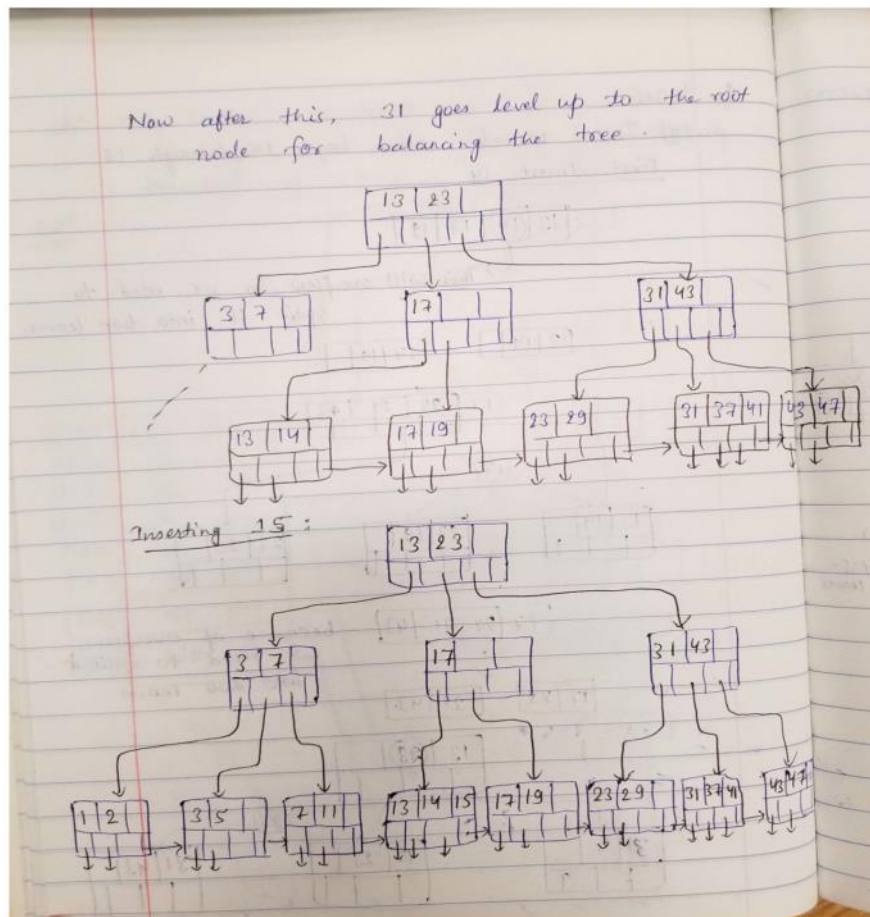 Now after this, 31 goes level up to the root
node for balancing the tree.
13 23
3 7
17
31 43
13 14
17 19
23 29
31 37 41
43 47
Inserting 15:
13 23
3 7
17
31 43
1 2
3 5
7 11
13 14 15
17 19
23 29
31 37 41
43 47